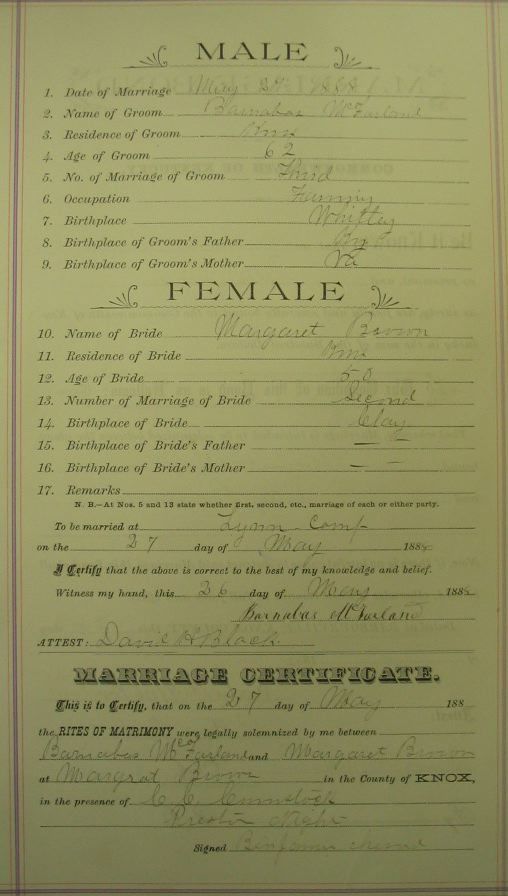 MALE
1. Date of Marriage May 27 1888
2. Name of Groom Barnabas McFarland
3. Residence of Groom Knox
4. Age of Groom 62
5. No. of Marriage of Groom Third
6. Occupation Farming
7. Birthplace Whitley
8. Birthplace of Groom's Father
9. Birthplace of Groom's Mother Va
FEMALE
10. Name of Bride Margaret Brown
11. Residence of Bride Knox
12. Age of Bride 50
13. Number of Marriage of Bride Second
14. Birthplace of Bride Clay
15. Birthplace of Bride's Father — —
16. Birthplace of Bride's Mother — —
17. Remarks
N. B.—At Nos. 5 and 13 state whether first, second, etc., marriage of each or either party.
To be married at Lynn Camp
on the 27 day of May 1888
I Certify that the above is correct to the best of my knowledge and belief.
Witness my hand, this 26 day of May 1888
Barnabas McFarland
ATTEST: David H Black
MARRIAGE CERTIFICATE.
This is to Certify, that on the 27 day of May 188
the RITES OF MATRIMONY were legally solemnized by me between
Barnabas McFarland and Margaret Brown
at Margrat Brown in the County of KNOX,
in the presence of C. C.
Signed Benjamin